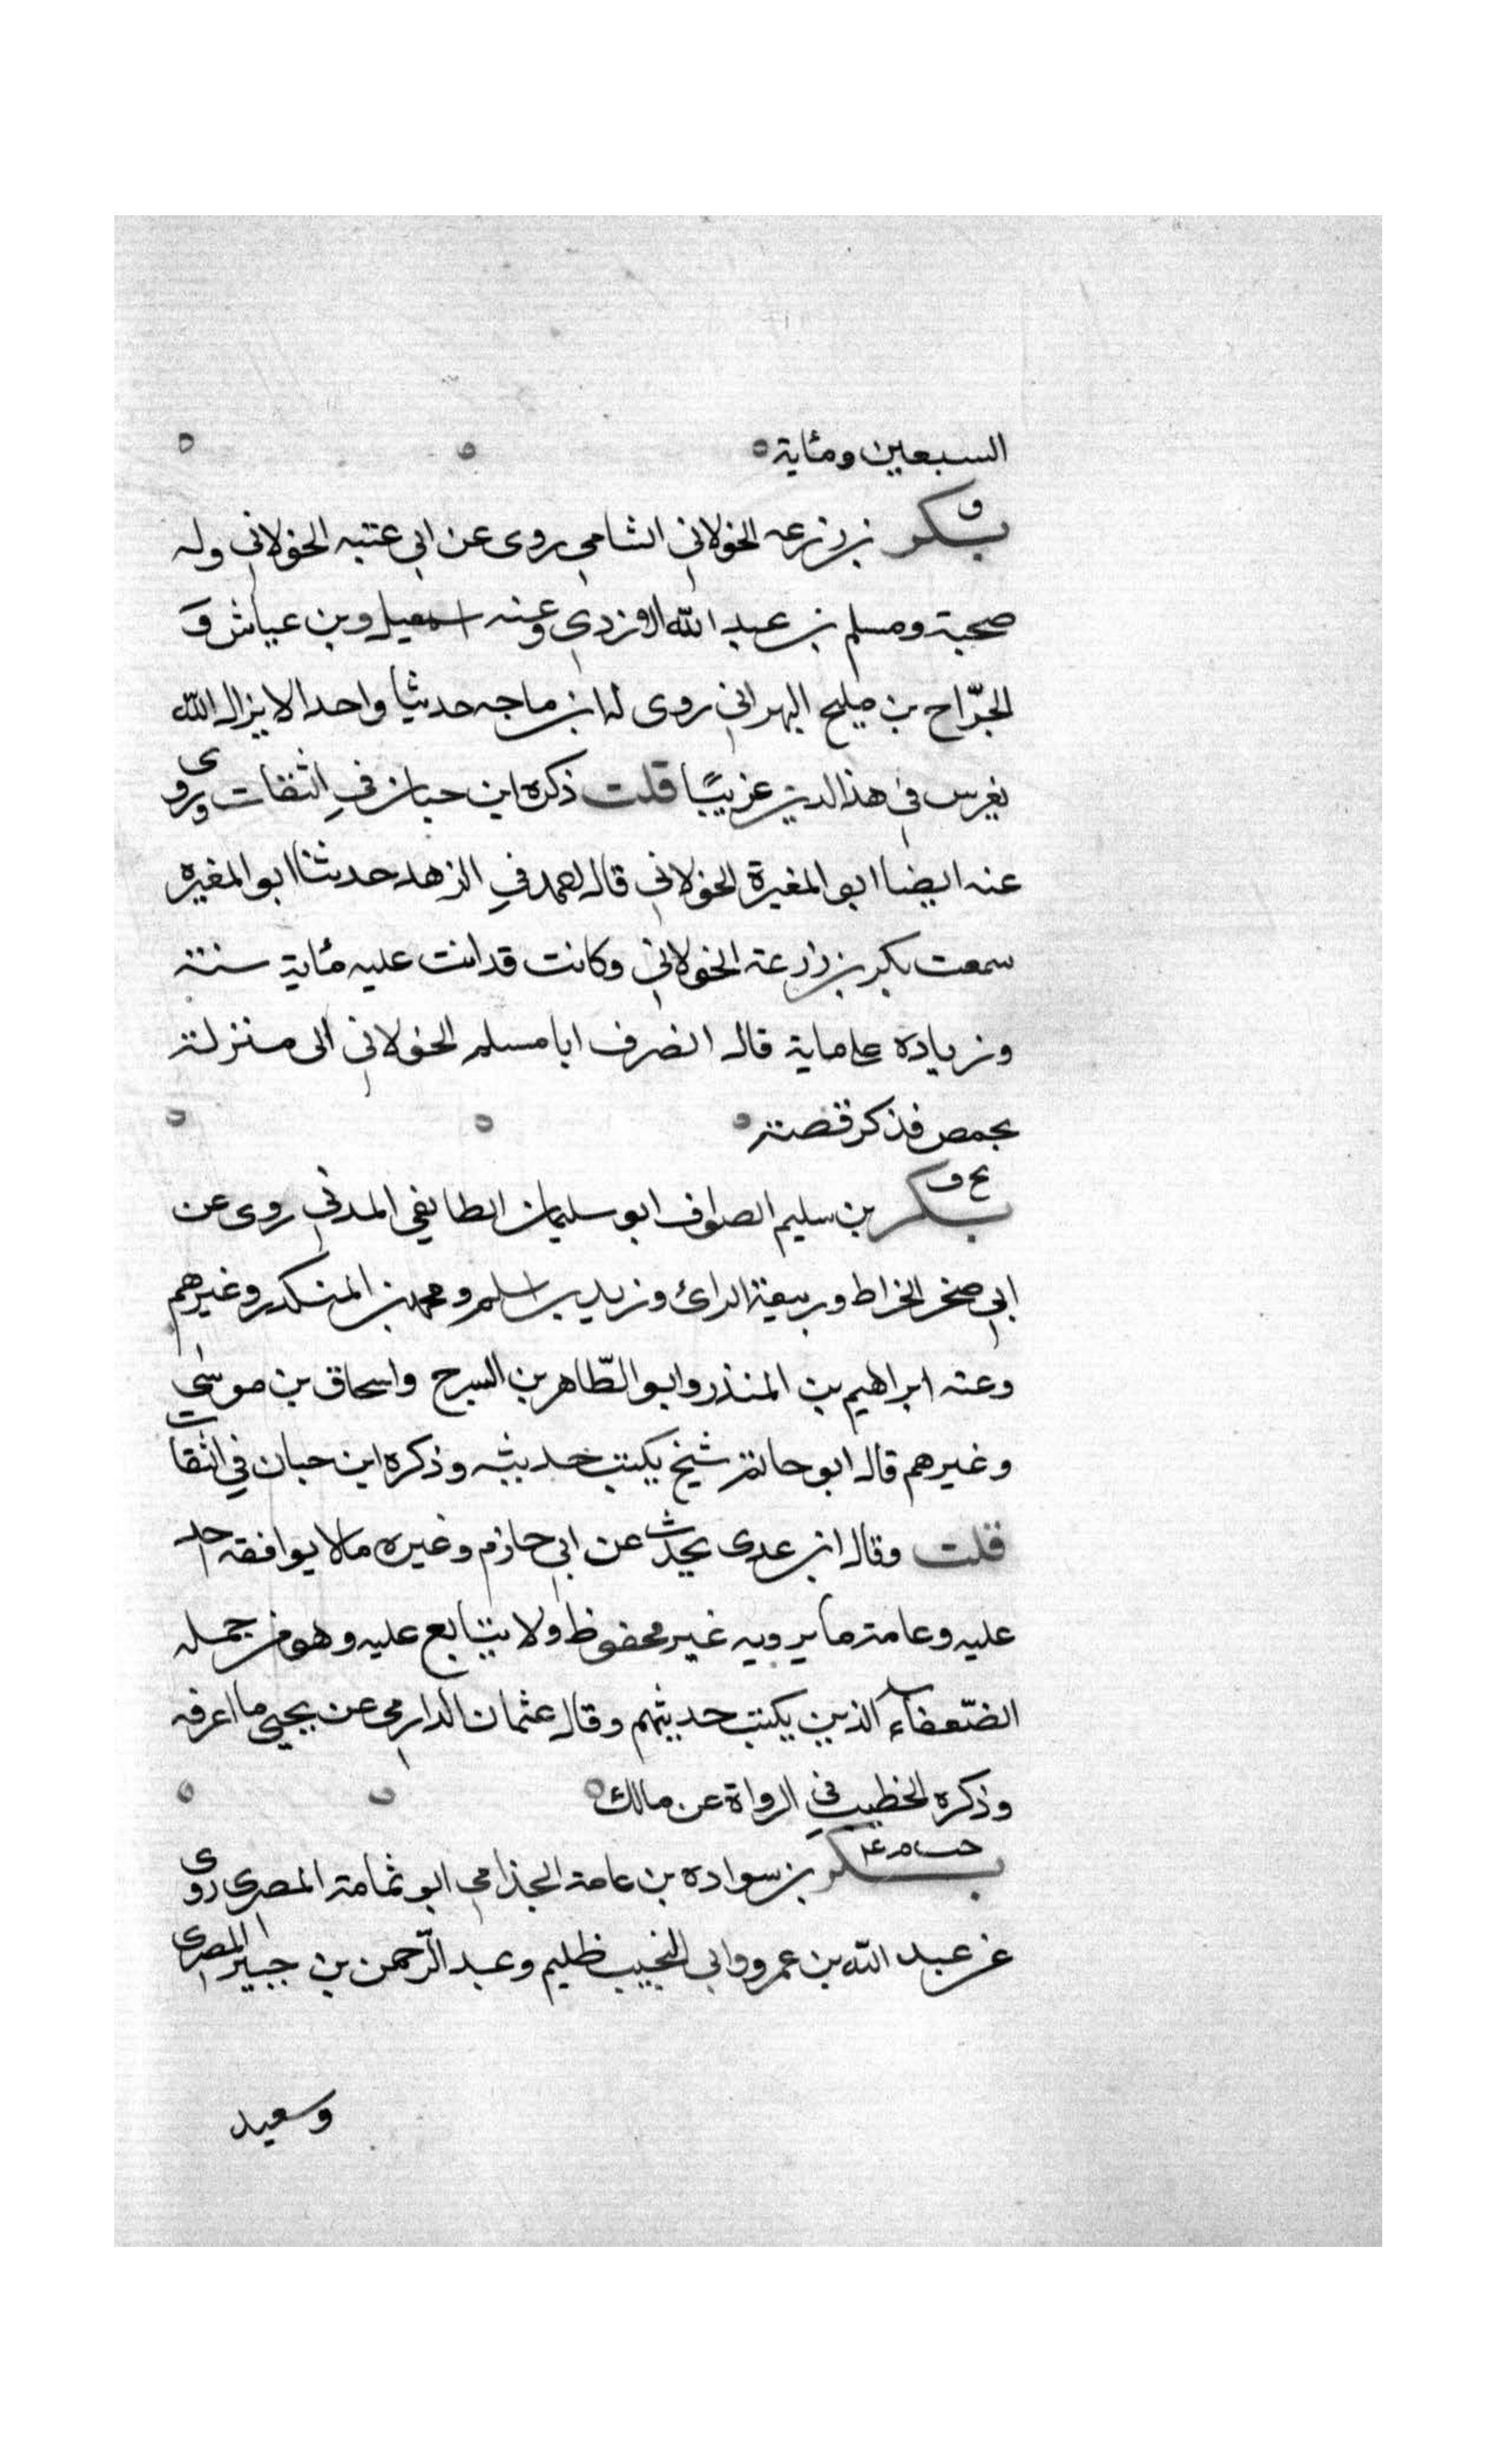 السبعين ومئاية
ق
بكر بن زرعه الخولاني الشامي روى عن ابي عتبه الخولاني وله
صحبة ومسلم بن عبد الله الازدي وعنه اسمعيل وبن عياش و
الجرّاح بن مليح البهراني روى له ابن ماجه حديثا واحدا لا يزال الله
يغرس في هذا الدين غريبًا قلت ذكره ابن حبان في الثقات ويروى
عنه ايضا ابو المغيرة الخولاني قال احمد في الزهد حدثنا ابو المغيره
سمعت بكر بن زرعة الخولاني وكانت قد اتت عليه مئاية سنة
وزيادة على ماية قال انصرف ابا مسلم الخولاني الى منزلة
بحمص فذكر قصة
بخ ق
بكر بن سليم الصواف ابو سليمان الطايفي المدني روى عن
ابي صخر الخراط وربيعة الرائ وزيد بن اسلم ومحمد بن المنكدر وغيرهم
وعنه ابراهيم بن المنذر وابو الطّاهر بن السرح واسحاق بن موسى
وغيرهم قال ابو حاتم شيخ يكتب حديثه وذكره ابن حبان في الثقات
قلت وقال ابن عدى يحدث عن ابي حازم وغيره مالا يوافقه احد
عليه وعامة ما يرويه غير محفوظ ولا يتابع عليه وهو من جمله
الضّعفاء الذين يكتب حديثهم وقال عثمان الدارمي عن يحيى ما اعرفه
وذكره الخطيب في الرواة عن مالك
بكر بن سواده بن عامة الجذامي ابو ثمامة المصرى روى
عن عبد الله بن عمرو وابي النجيب ظليم وعبد الرّحمن بن جبير المصرى
وسعيد